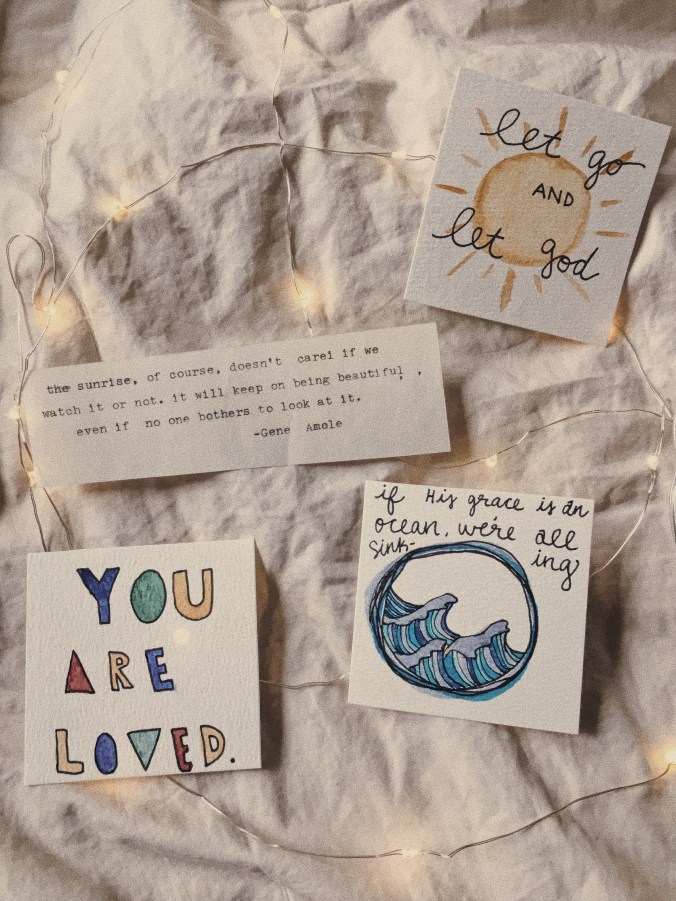 let go
AND
let god
the sunrise, of course, doesn't carei if we
watch it or not. it will keep on being beautiful, ,
even if no one bothers to look at it.
-Gene Amole
if His grace is an
ocean, we're all
sink-
ing
YOU
ARE
LOVED.